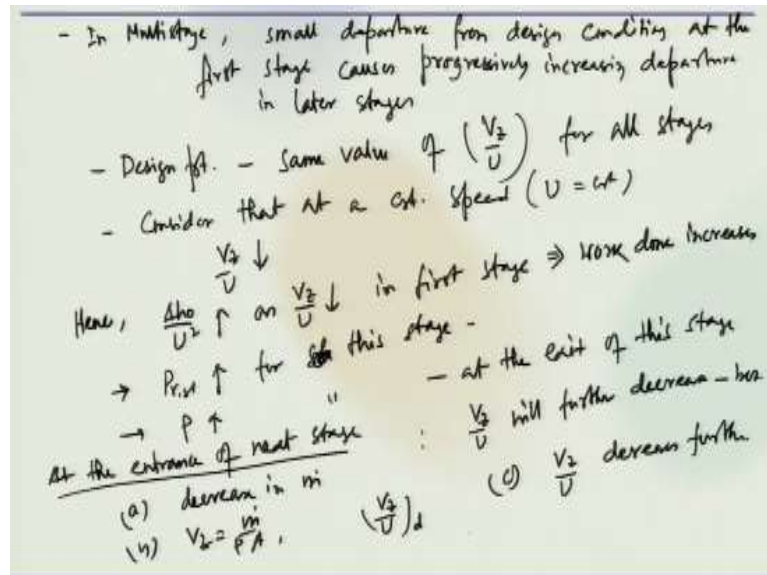 - In Multistage, small departure from design condition at the
first stage causes progressively increasing departure
in later stages
- Design pt. - Same value of (Vz/U) for all stages
- Consider that at a cst. speed (U = cst)
Vz/U ↓
Hence, Δho/U² ↑ as Vz/U ↓ in first stage ⇒ work done increases
→ Pr. ↑ for this stage -
→ ρ ↑ " - at the exit of this stage
At the entrance of next stage : Vz/U will further decrease - bcz
(a) decrease in ṁ (c) Vz/U decreases further
(b) Vz = ṁ/ρA, (Vz/U)d